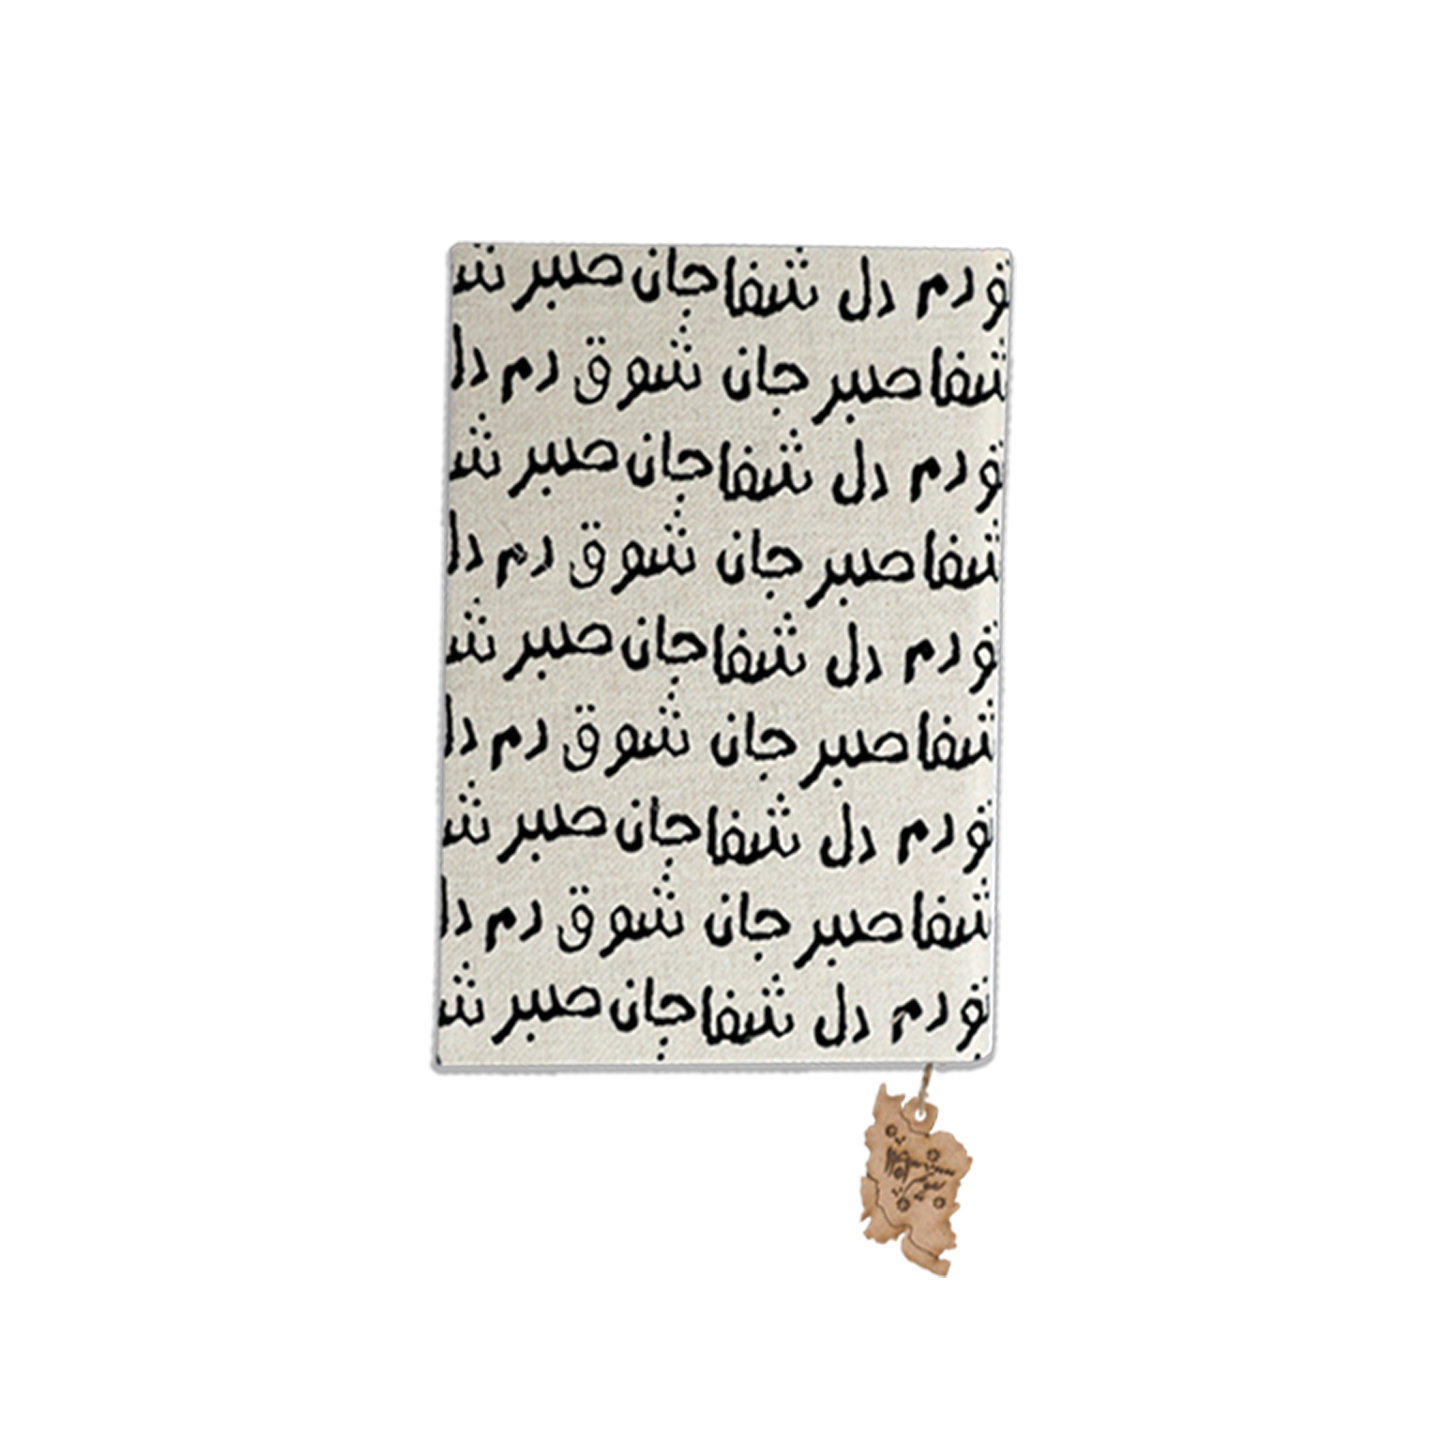 دم دل شفا جان صبر
شفا صبر جان شوق دم دل
دم دل شفا جان صبر
شفا صبر جان شوق دم دل
دم دل شفا جان صبر
شفا صبر جان شوق دم دل
دم دل شفا جان صبر
شفا صبر جان شوق دم دل
دم دل شفا جان صبر